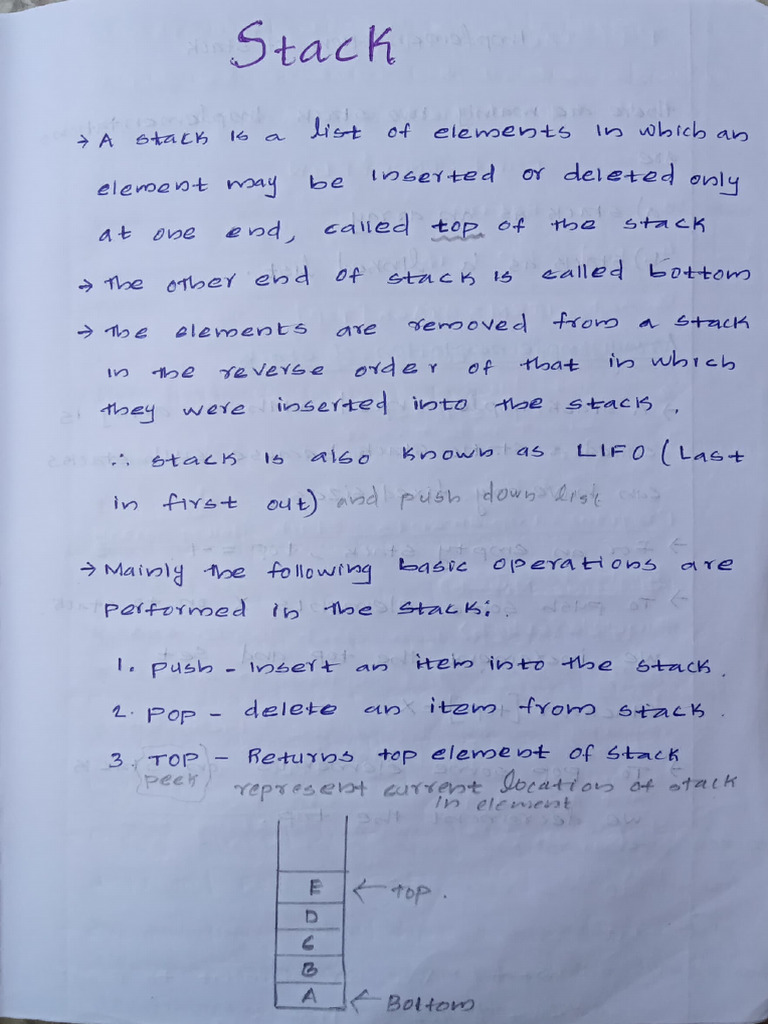 Stack
→ A stack is a list of elements in which an
element may be inserted or deleted only
at one end, called top of the stack
→ The other end of stack is called bottom
→ The elements are removed from a stack
in the reverse order of that in which
they were inserted into the stack.
∴ stack is also known as LIFO (Last
in first out) and push down list
→ Mainly the following basic operations are
performed in the stack:
1. push - insert an item into the stack.
2. POP - delete an item from stack.
3. TOP - Returns top element of stack
(peek) represent current location of stack
in element
E ← top.
D
C
B
A ← Bottom